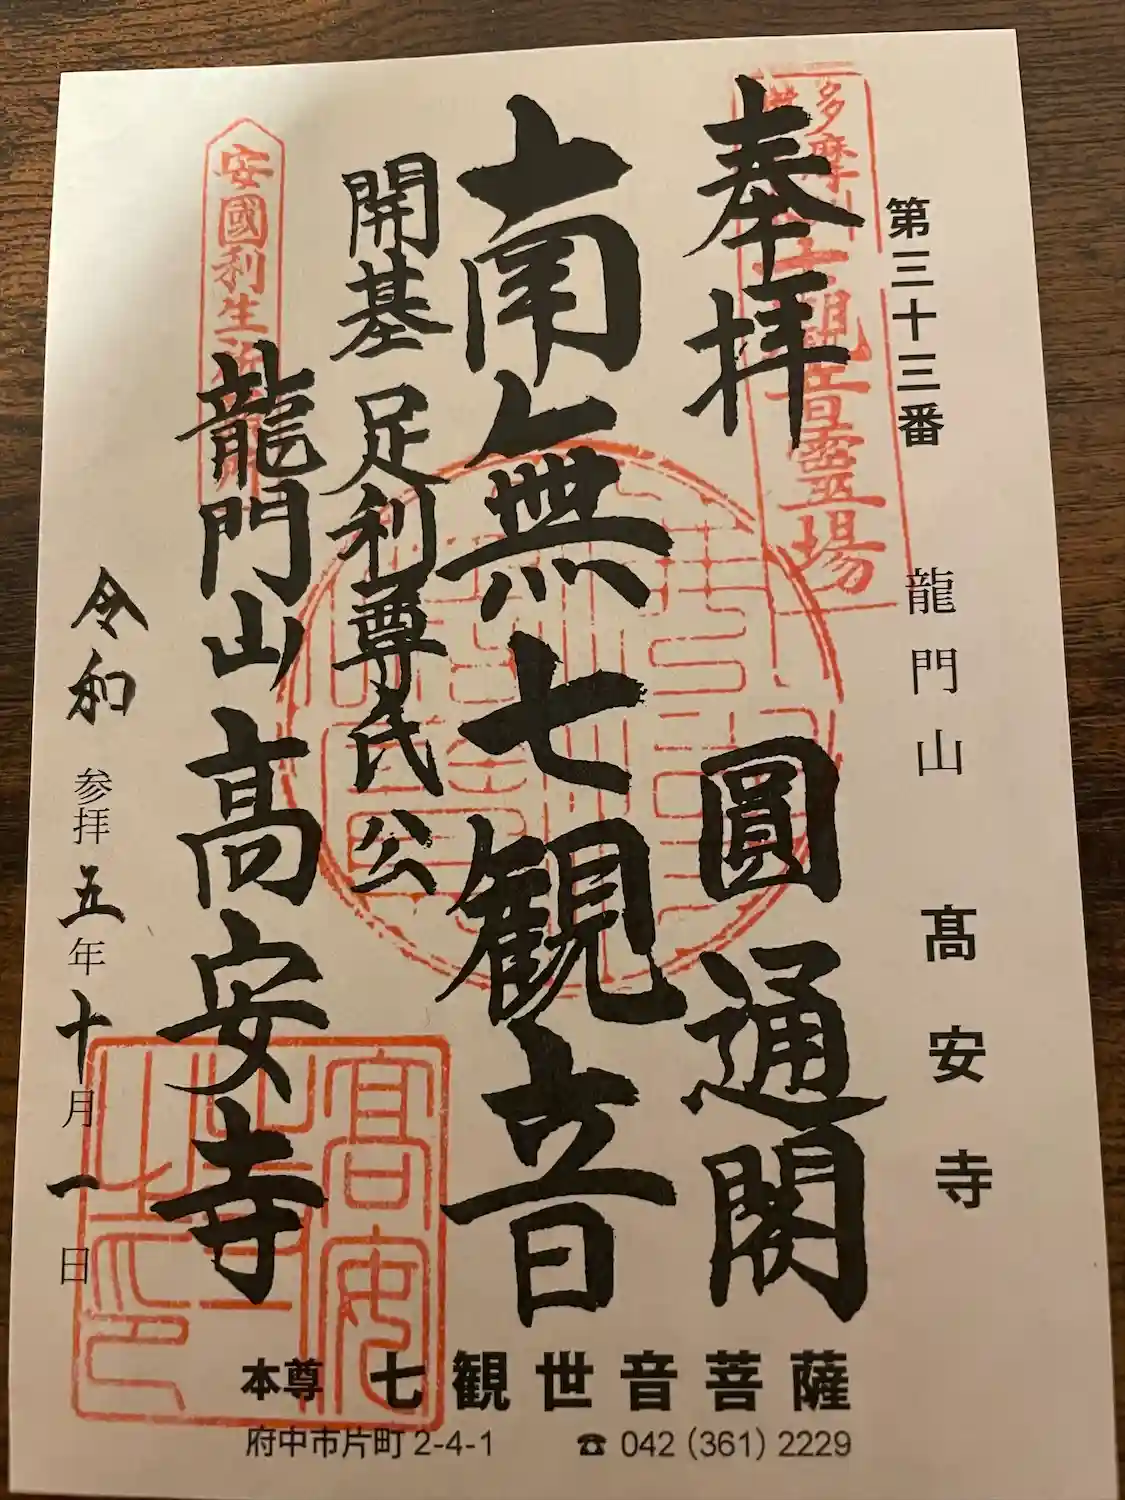 第三十三番 龍門山 髙安寺
奉拝 圓通閣
南無七観音
開基 足利尊氏公
龍門山 高安寺
令和 参拝 五年 十月 一日
安國利生
霊場
本尊 七観世音菩薩
府中市片町 2-4-1 ☎ 042 (361) 2229